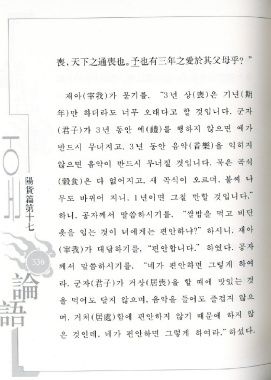 喪, 天下之通喪也. 予也有三年之愛於其父母乎? "
재아(宰我)가 묻기를, "3년 상(喪)은 기년(期
年)만 하더라도 너무 오래다고 할 것입니다. 군자
(君子)가 3년 동안 예(禮)를 행하지 않으면 예가
반드시 무너지고, 3년 동안 음악(音樂)을 익히지
않으면 음악이 반드시 무너질 것입니다. 묵은 곡식
(穀食)은 다 없어지고, 새 곡식이 오르며, 불씨 나
무도 바뀌어 지니, 1년이면 그칠 만할 것입니다."
하니, 공자께서 말씀하시기를, "쌀밥을 먹고 비단
옷을 입는 것이 너에게는 편안하냐?" 하시니, 재아
(宰我)가 대답하기를, "편안합니다." 하였다. 공자
께서 말씀하시기를, "네가 편안하면 그렇게 하여
라. 군자(君子)가 거상(居喪)을 할 때에 맛있는 것
을 먹어도 달지 않으며, 음악을 들어도 즐겁지 않으
며, 거처(居處)함에 편안하지 않기 때문에 하지 않
은 것인데, 네가 편안하면 그렇게 하여라." 하셨다.
陽貨篇第十七
336
論語